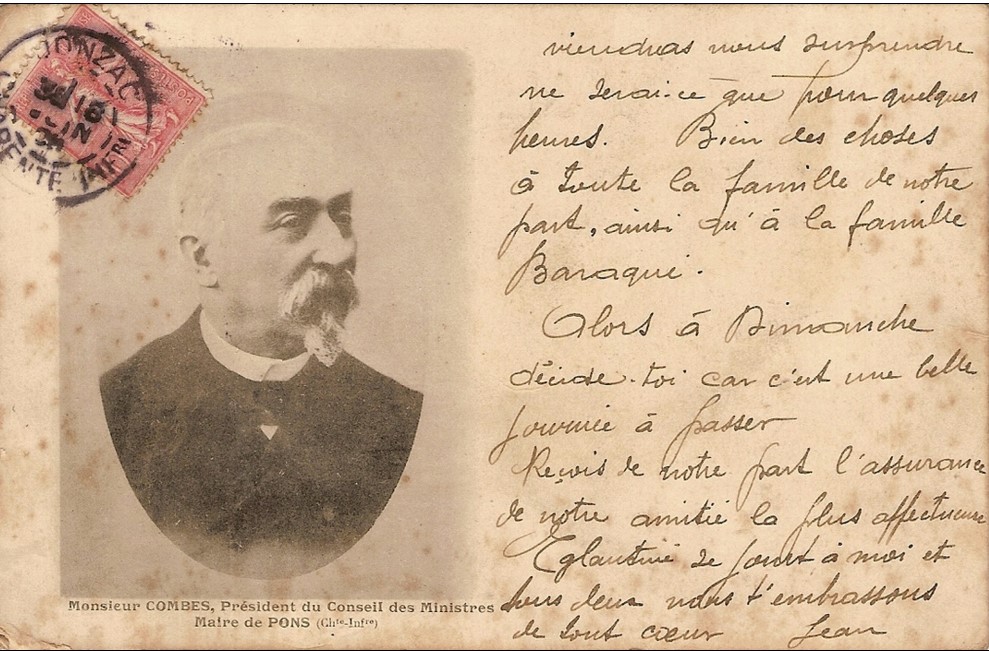 JONZAC
16
JUIN
POSTES
viendras nous surprendre
ne serai-ce que pour quelques
heures. Bien des choses
à toute la famille de notre
part, ainsi qu'à la famille
Baraqué.
Alors à Dimanche
décide-toi car c'est une belle
journée à passer
Reçois de notre part l'assurance
de notre amitié la plus affectueuse
Eglantine se joint à moi et
tous deux nous t'embrassons
de tout cœur Jean
Monsieur COMBES, Président du Conseil des Ministres
Maire de PONS (Chte-Infre)